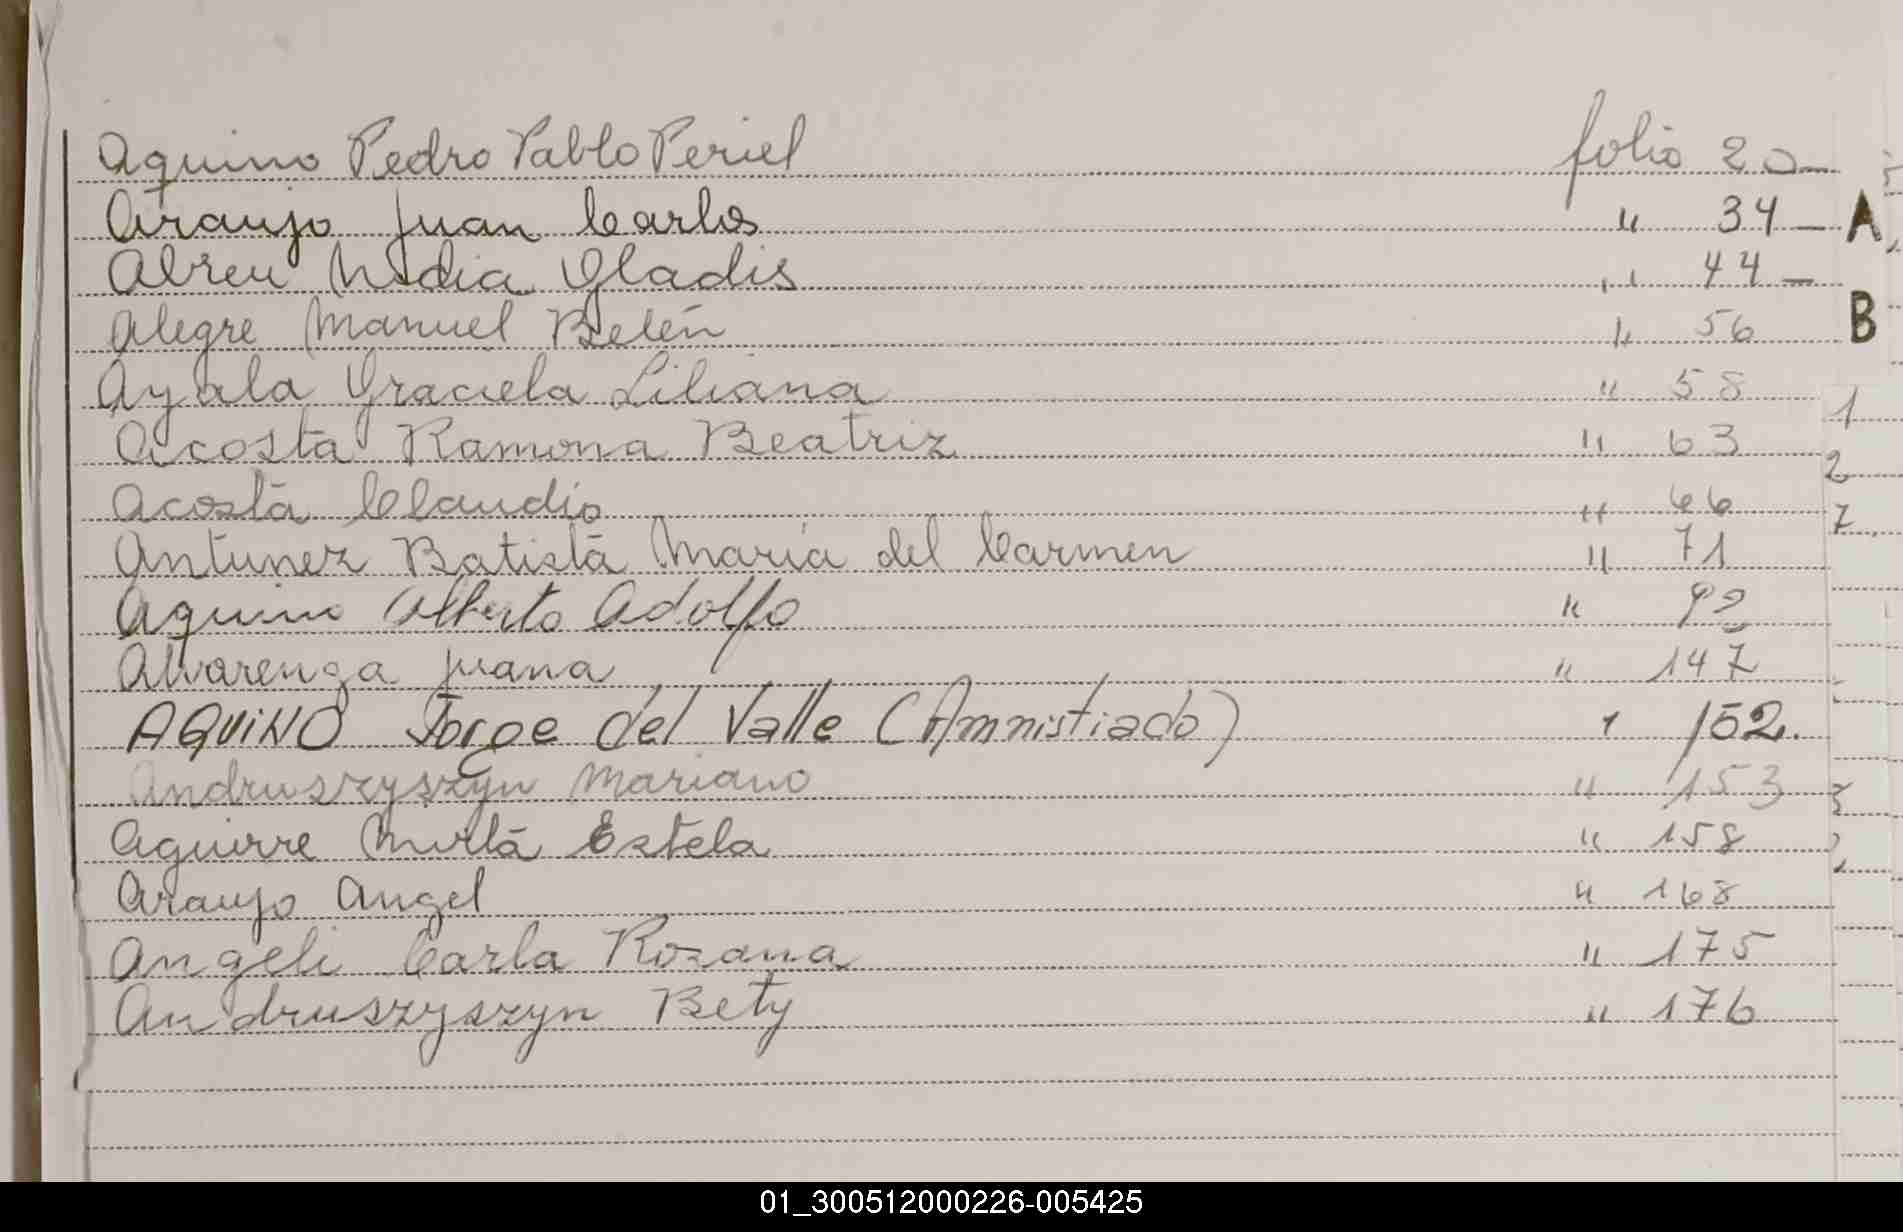 Aquino Pedro Pablo Periel folio 20 —
Araujo Juan Carlos " 34 — A
Abreu Nidia Gladis " 44 —
Alegre Manuel Belén " 56 B
Ayala Graciela Liliana " 58
Acosta Ramona Beatriz " 63
Acosta Claudio " 66
Antunez Batista Maria del Carmen " 71
Aquino Alberto Adolfo " 92
Alvarenga Juana " 147
AQUINO Jorge del Valle (Amnistiado) " 152.
Andruszyszyn Mariano " 153
Aguirre Mirta Estela " 158
Araujo Angel " 168
Angeli Carla Rozana " 175
Andruszyszyn Bety " 176
1
2
7
01_300512000226-005425